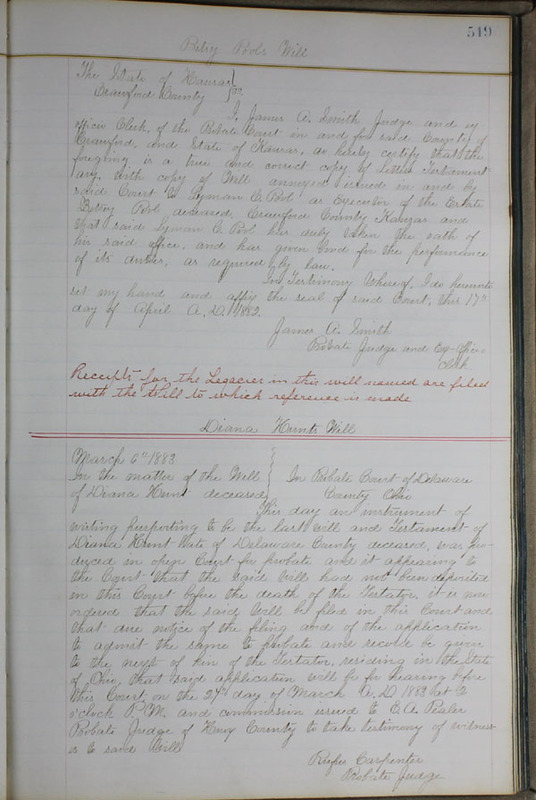 519
Betsy Pools Will
The State of Kansas
Crawford County } ss
I, James A. Smith Judge and ex
officio Clerk, of the Probate Court in and for said County of
Crawford, and State of Kansas, do hereby certify that the
foregoing is a true and correct copy of Letters Testament
ary, with copy of Will annexed issued in and by
said Court to Lyman C. Pool as Executor of the Estate
Betsy Pool deceased, Crawford County Kansas and
that said Lyman C. Pool has duly taken the oath of
his said office, and has given bond for the performance
of its duties, as required by law.
In Testimony Whereof, I do hereunto
set my hand and affix the seal of said Court, this 17th
day of April A.D. 1882.
James A. Smith
Probate Judge and Ex-Officio
Clerk
Receipts for the Legacies in this will named are filed
with the Will to which reference is made
Diana Hunts Will
March 6th 1883
In the matter of the Will
of Diana Hunt deceased
In Probate Court of Delaware
County Ohio
This day an instrument of
writing purporting to be the last will and Testament of
Diana Hunt late of Delaware County deceased, was pro-
duced in open Court for probate and it appearing to
the Court that the said Will had not been deposited
in this Court before the death of the Testator, it is now
ordered that the said Will be filed in this Court and
that due notice of the filing and of the application
to admit the same to probate and record be given
to the next of kin of the Testator, residing in the State
of Ohio, that said application will be for hearing before
this Court, on the 24th day of March A.D. 1883 at
o'clock P.M. and commission issued to C. A.
Probate Judge of Henry County to take testimony of witness-
es to said Will
Rufus Carpenter
Probate Judge